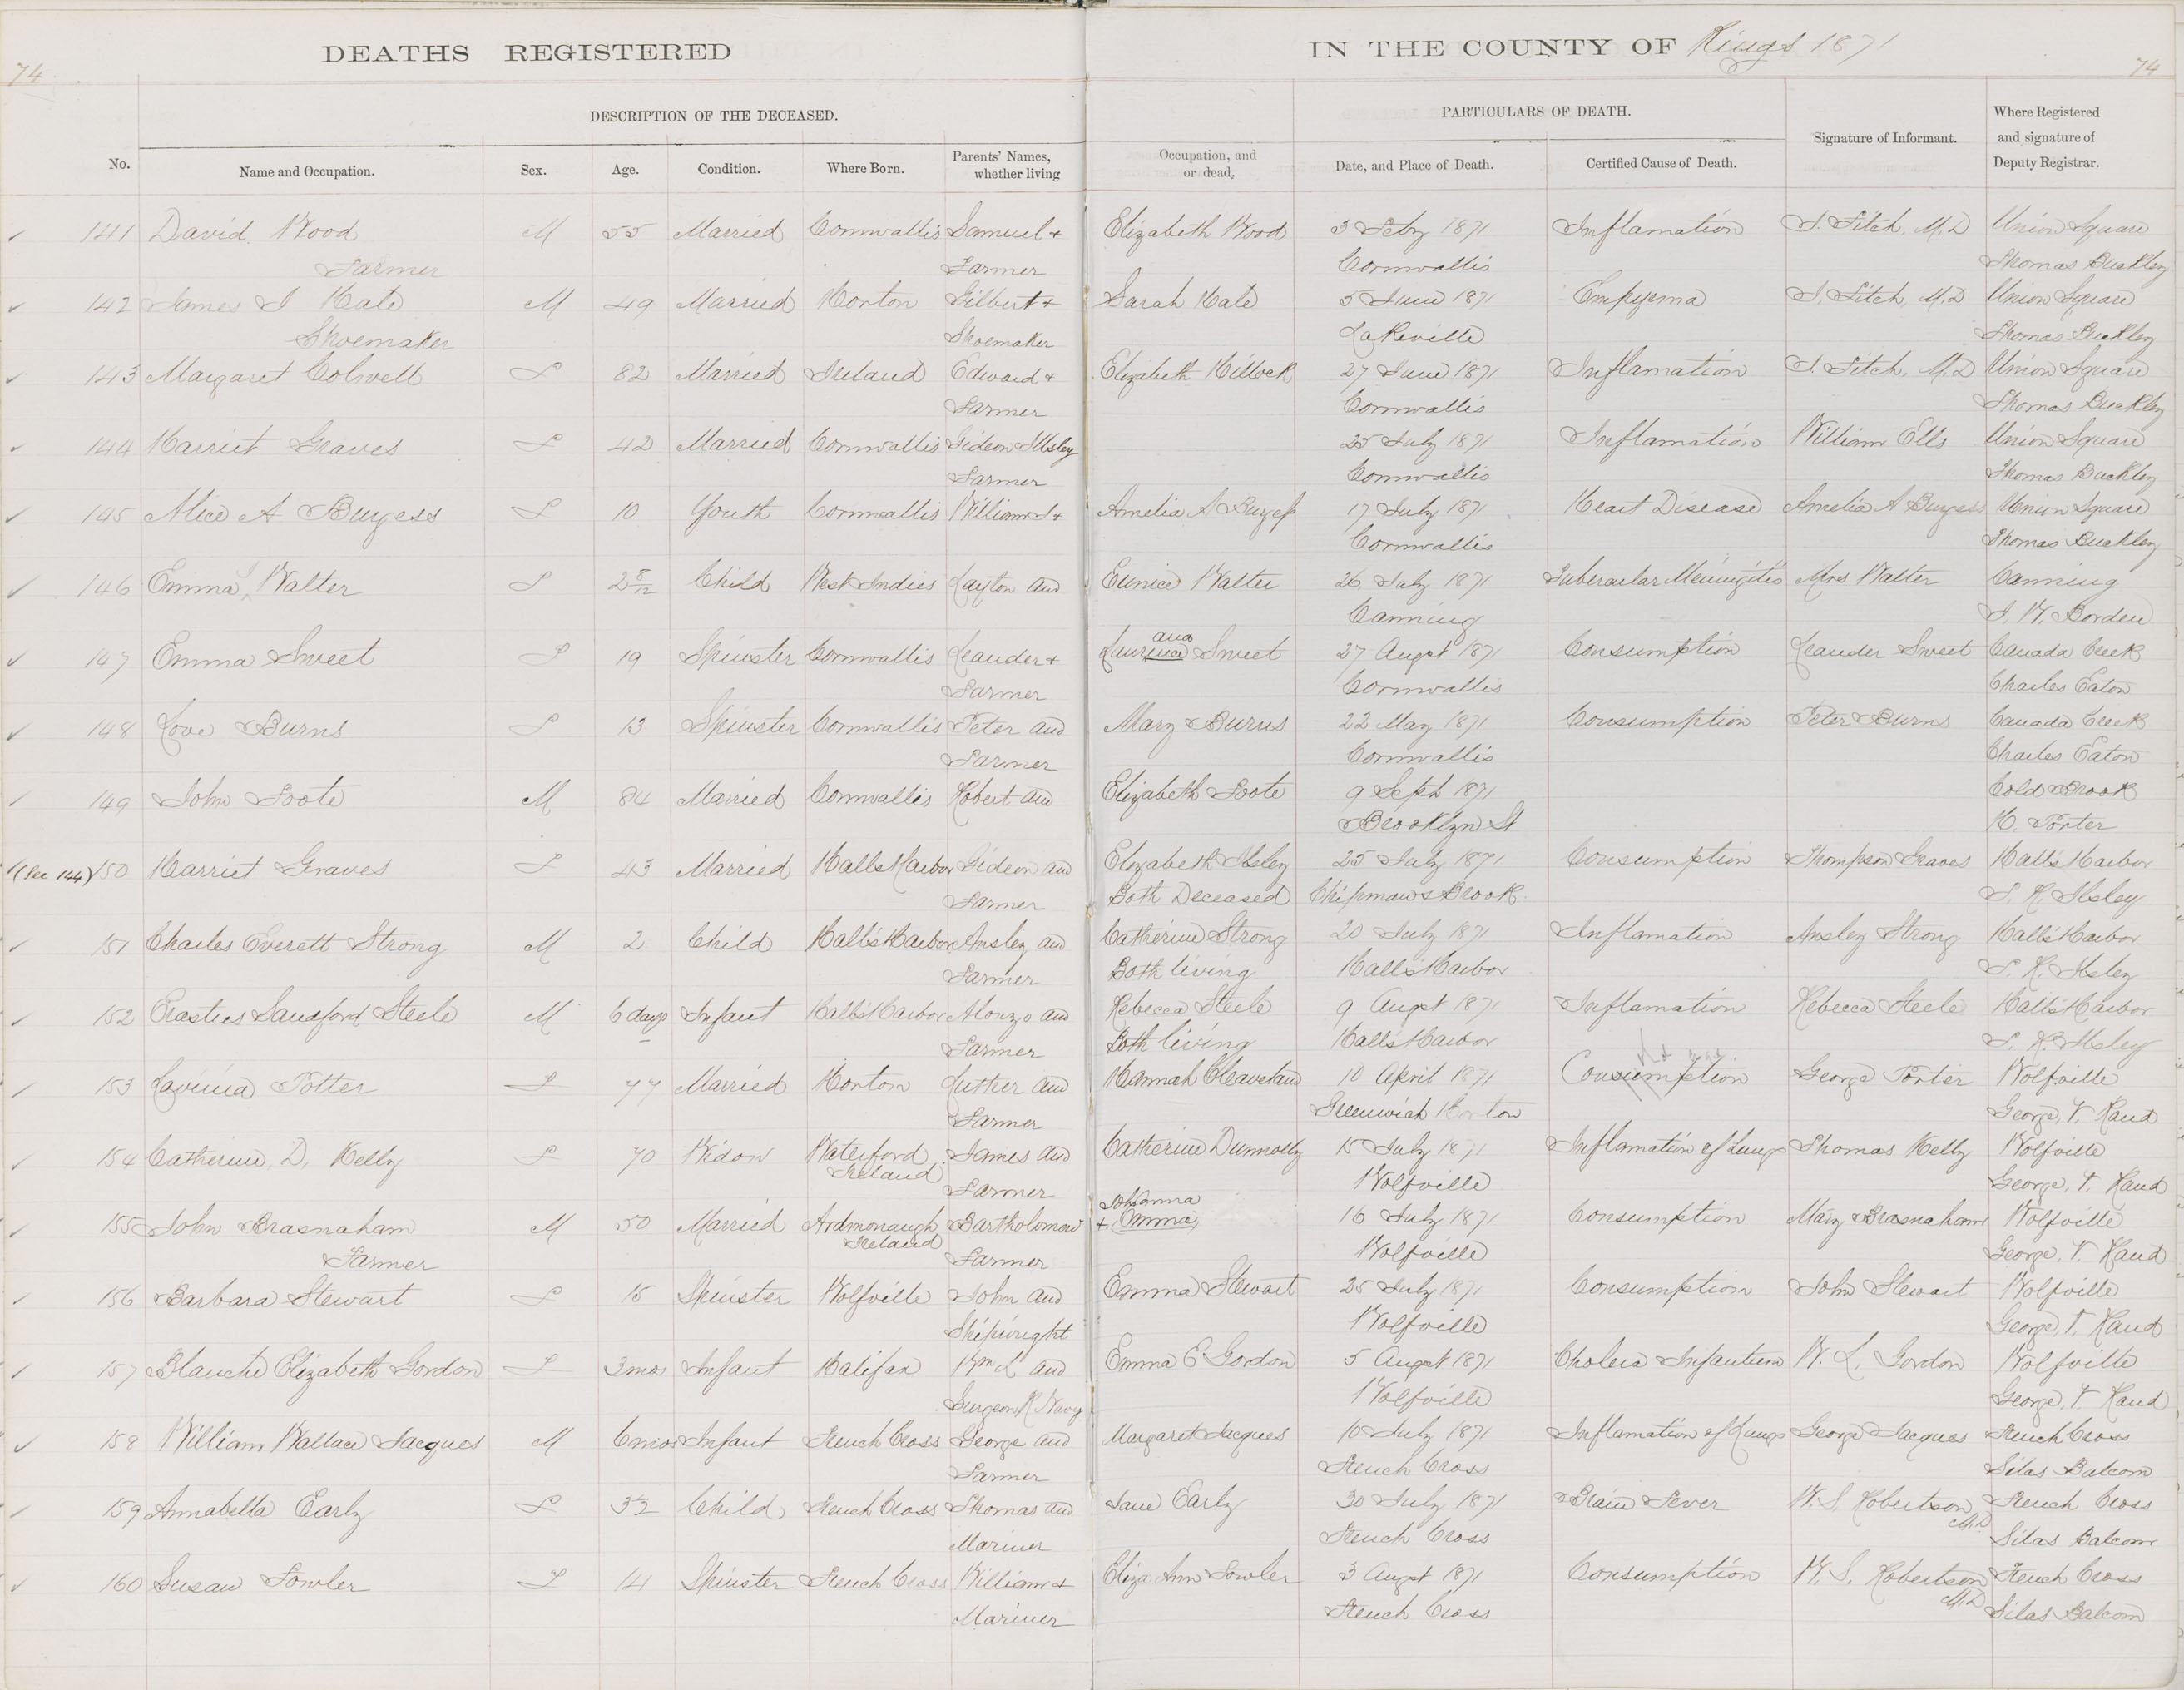 74
DEATHS REGISTERED
IN THE COUNTY OF Kings 1871
74
DESCRIPTION OF THE DECEASED.
PARTICULARS OF DEATH.
No.
Name and Occupation.
Sex.
Age.
Condition.
Where Born.
Parents' Names, whether living
Occupation, and or dead,
Date, and Place of Death.
Certified Cause of Death.
Signature of Informant.
Where Registered and signature of Deputy Registrar.
141 David Wood M 55 Married Cornwallis Samuel + Elizabeth Wood 3 Feby 1871 Inflamation Union Square
Farmer Farmer Cornwallis Thomas Buckley
142 James Hate M 49 Married Horton Gilbert + Sarah Hate 5 June 1871 Empyema Union Square
Shoemaker Shoemaker Lakeville Thomas Buckley
143 Margaret Colwell F 82 Married Ireland Edward + Elizabeth Killock 27 June 1871 Inflamation Union Square
Farmer Cornwallis Thomas Buckley
144 Harriet Graves F 42 Married Cornwallis Gideon Ilsley 25 July 1871 Inflamation William Ells Union Square
Farmer Cornwallis Thomas Buckley
145 Alice A Burgess F 10 Youth Cornwallis William J + Amelia A Burgess 17 July 1871 Heart Disease Amelia A Burgess Union Square
Cornwallis Thomas Buckley
146 Emma J Walter F 2 8/12 Child West Indies Layton and Eunice Walter 26 July 1871 Tubercular Meningitis Mrs Walter Canning
Canning J. W. Borden
147 Emma Sweet F 19 Spinster Cornwallis Leander + Laurence ana Sweet 27 Augst 1871 Consumption Leander Sweet Canada Creek
Farmer Cornwallis Charles Eaton
148 Love Burns F 13 Spinster Cornwallis Peter and Mary Burns 22 May 1871 Consumption Peter Burns Canada Creek
Farmer Cornwallis Charles Eaton
149 John Foote M 84 Married Cornwallis Robert and Elizabeth Foote 9 Sept 1871 Cold Brook
Brooklyn St H. Porter
(See 144) 150 Harriet Graves F 43 Married Halls Harbor Gideon and Elizabeth Ilsley 25 July 1871 Consumption Thompson Graves Hall's Harbor
Farmer Both Deceased Chipman's Brook S. R. Ilsley
151 Charles Everett Strong M 2 Child Hall's Harbor Ansley and Catherine Strong 20 July 1871 Inflamation Ansley Strong Hall's Harbor
Farmer Both living Hall's Harbor S. R. Ilsley
152 Erastus Sandford Steele M 6 days Infant Hall's Harbor Alonzo and Rebecca Steele 9 Augst 1871 Inflamation Rebecca Steele Hall's Harbor
Farmer Both living Hall's Harbor S. R. Ilsley
153 Lavinia Potter F 77 Married Horton Luther and Hannah Cleaveland 10 April 1871 Consumption George Porter Wolfville
Farmer Greenwich Horton George, V. Rand
154 Catherine, D, Kelly F 70 Widow Waterford Ireland James and Catherine Dunnolly 15 July 1871 Inflamation of Lungs Thomas Kelly Wolfville
Farmer Wolfville George, V. Rand
155 John Brasnaham M 50 Married Ardmonaugh Ireland Bartholomew + Emma Johanna 16 July 1871 Consumption Mary Brasnaham Wolfville
Farmer Farmer Wolfville George, V. Rand
156 Barbara Stewart F 15 Spinster Wolfville John and Emma Stewart 25 July 1871 Consumption John Stewart Wolfville
Shipwright Wolfville George, V. Rand
157 Blanche Elizabeth Gordon F 3 mos Infant Halifax Wm L and Emma E Gordon 5 Augst 1871 Cholera Infantum W. L. Gordon Wolfville
Surgeon R Navy Wolfville George, V. Rand
158 William Wallace Jacques M 6 mos Infant French Cross George and Margaret Jacques 10 July 1871 Inflamation of Lungs George Jacques French Cross
Farmer French Cross Silas Balcom
159 Annabella Early F 3½ Child French Cross Thomas and Jane Early 30 July 1871 Brain Fever W. S. Robertson M.D French Cross
Mariner French Cross Silas Balcom
160 Susan Fowler F 14 Spinster French Cross William + Eliza Ann Fowler 3 Augst 1871 Consumption W. S. Robertson M.D French Cross
Mariner French Cross Silas Balcom